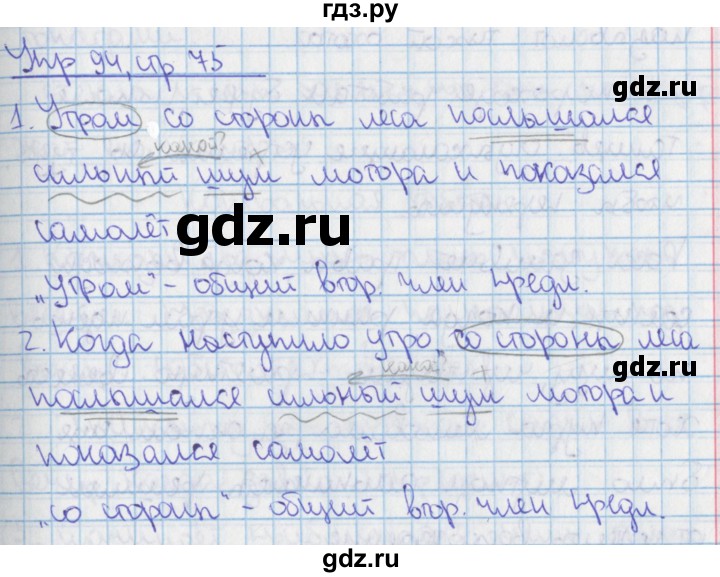 гдз.ру
Упр 94, стр 75
1. Утром со стороны леса послышался
какой?
сильный шум мотора и показался
самолёт
gdz.ru
„Утром" - общий втор. член предл.
2. Когда наступило утро, со стороны леса
какой?
послышался сильный шум мотора и
показался самолёт
„со стороны" - общий втор. член предл.
gdz.ru
gdz.ru
gdz.ru
gdz.ru